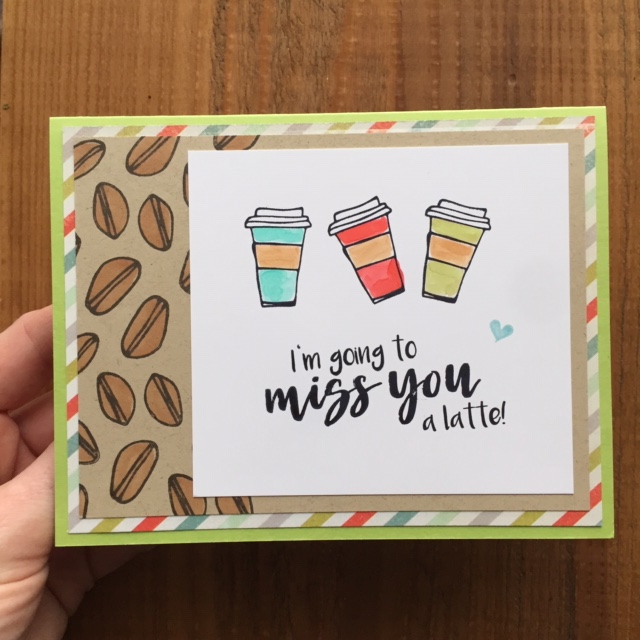 I'm going to
miss you
a latte!